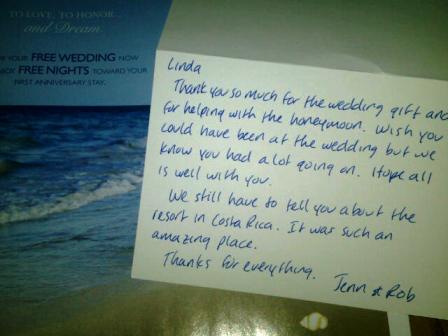 TO LOVE, TO HONOR...
and Dream.
YOUR FREE WEDDING NOW
FREE NIGHTS TOWARD YOUR
FIRST ANNIVERSARY STAY.
Linda
Thank you so much for the wedding gift and
for helping with the honeymoon. Wish you
could have been at the wedding but we
know you had a lot going on. I hope all
is well with you.
We still have to tell you about the
resort in Costa Rica. It was such an
amazing place.
Thanks for everything.
Jenn & Rob